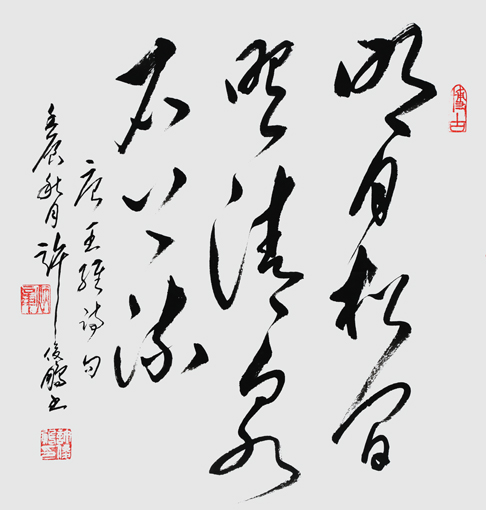 明月松间
照清泉
石上流
唐王维诗句
壬辰秋月许俊鹏书